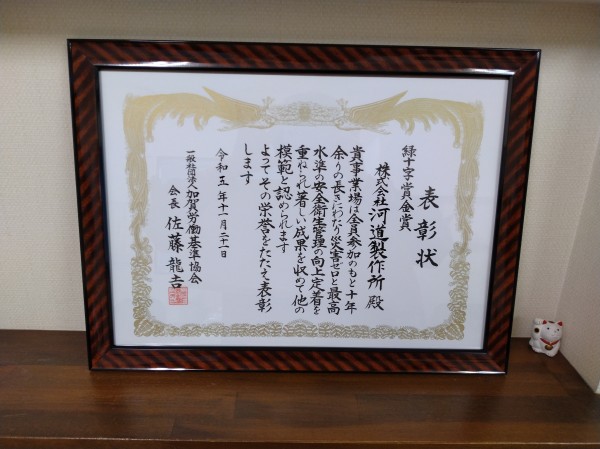 表彰状
緑十字賞金賞
株式会社河道製作所 殿
貴事業場は全員参加のもと十年
余りの長きにわたり災害ゼロと最高
水準の安全衛生管理の向上定着を
重ねられ著しい成果を収めて他の
模範と認められます
よってその栄誉をたたえ表彰
します
令和五年十一月二十一日
一般社団法人加賀労働基準協会
会長 佐藤龍吉